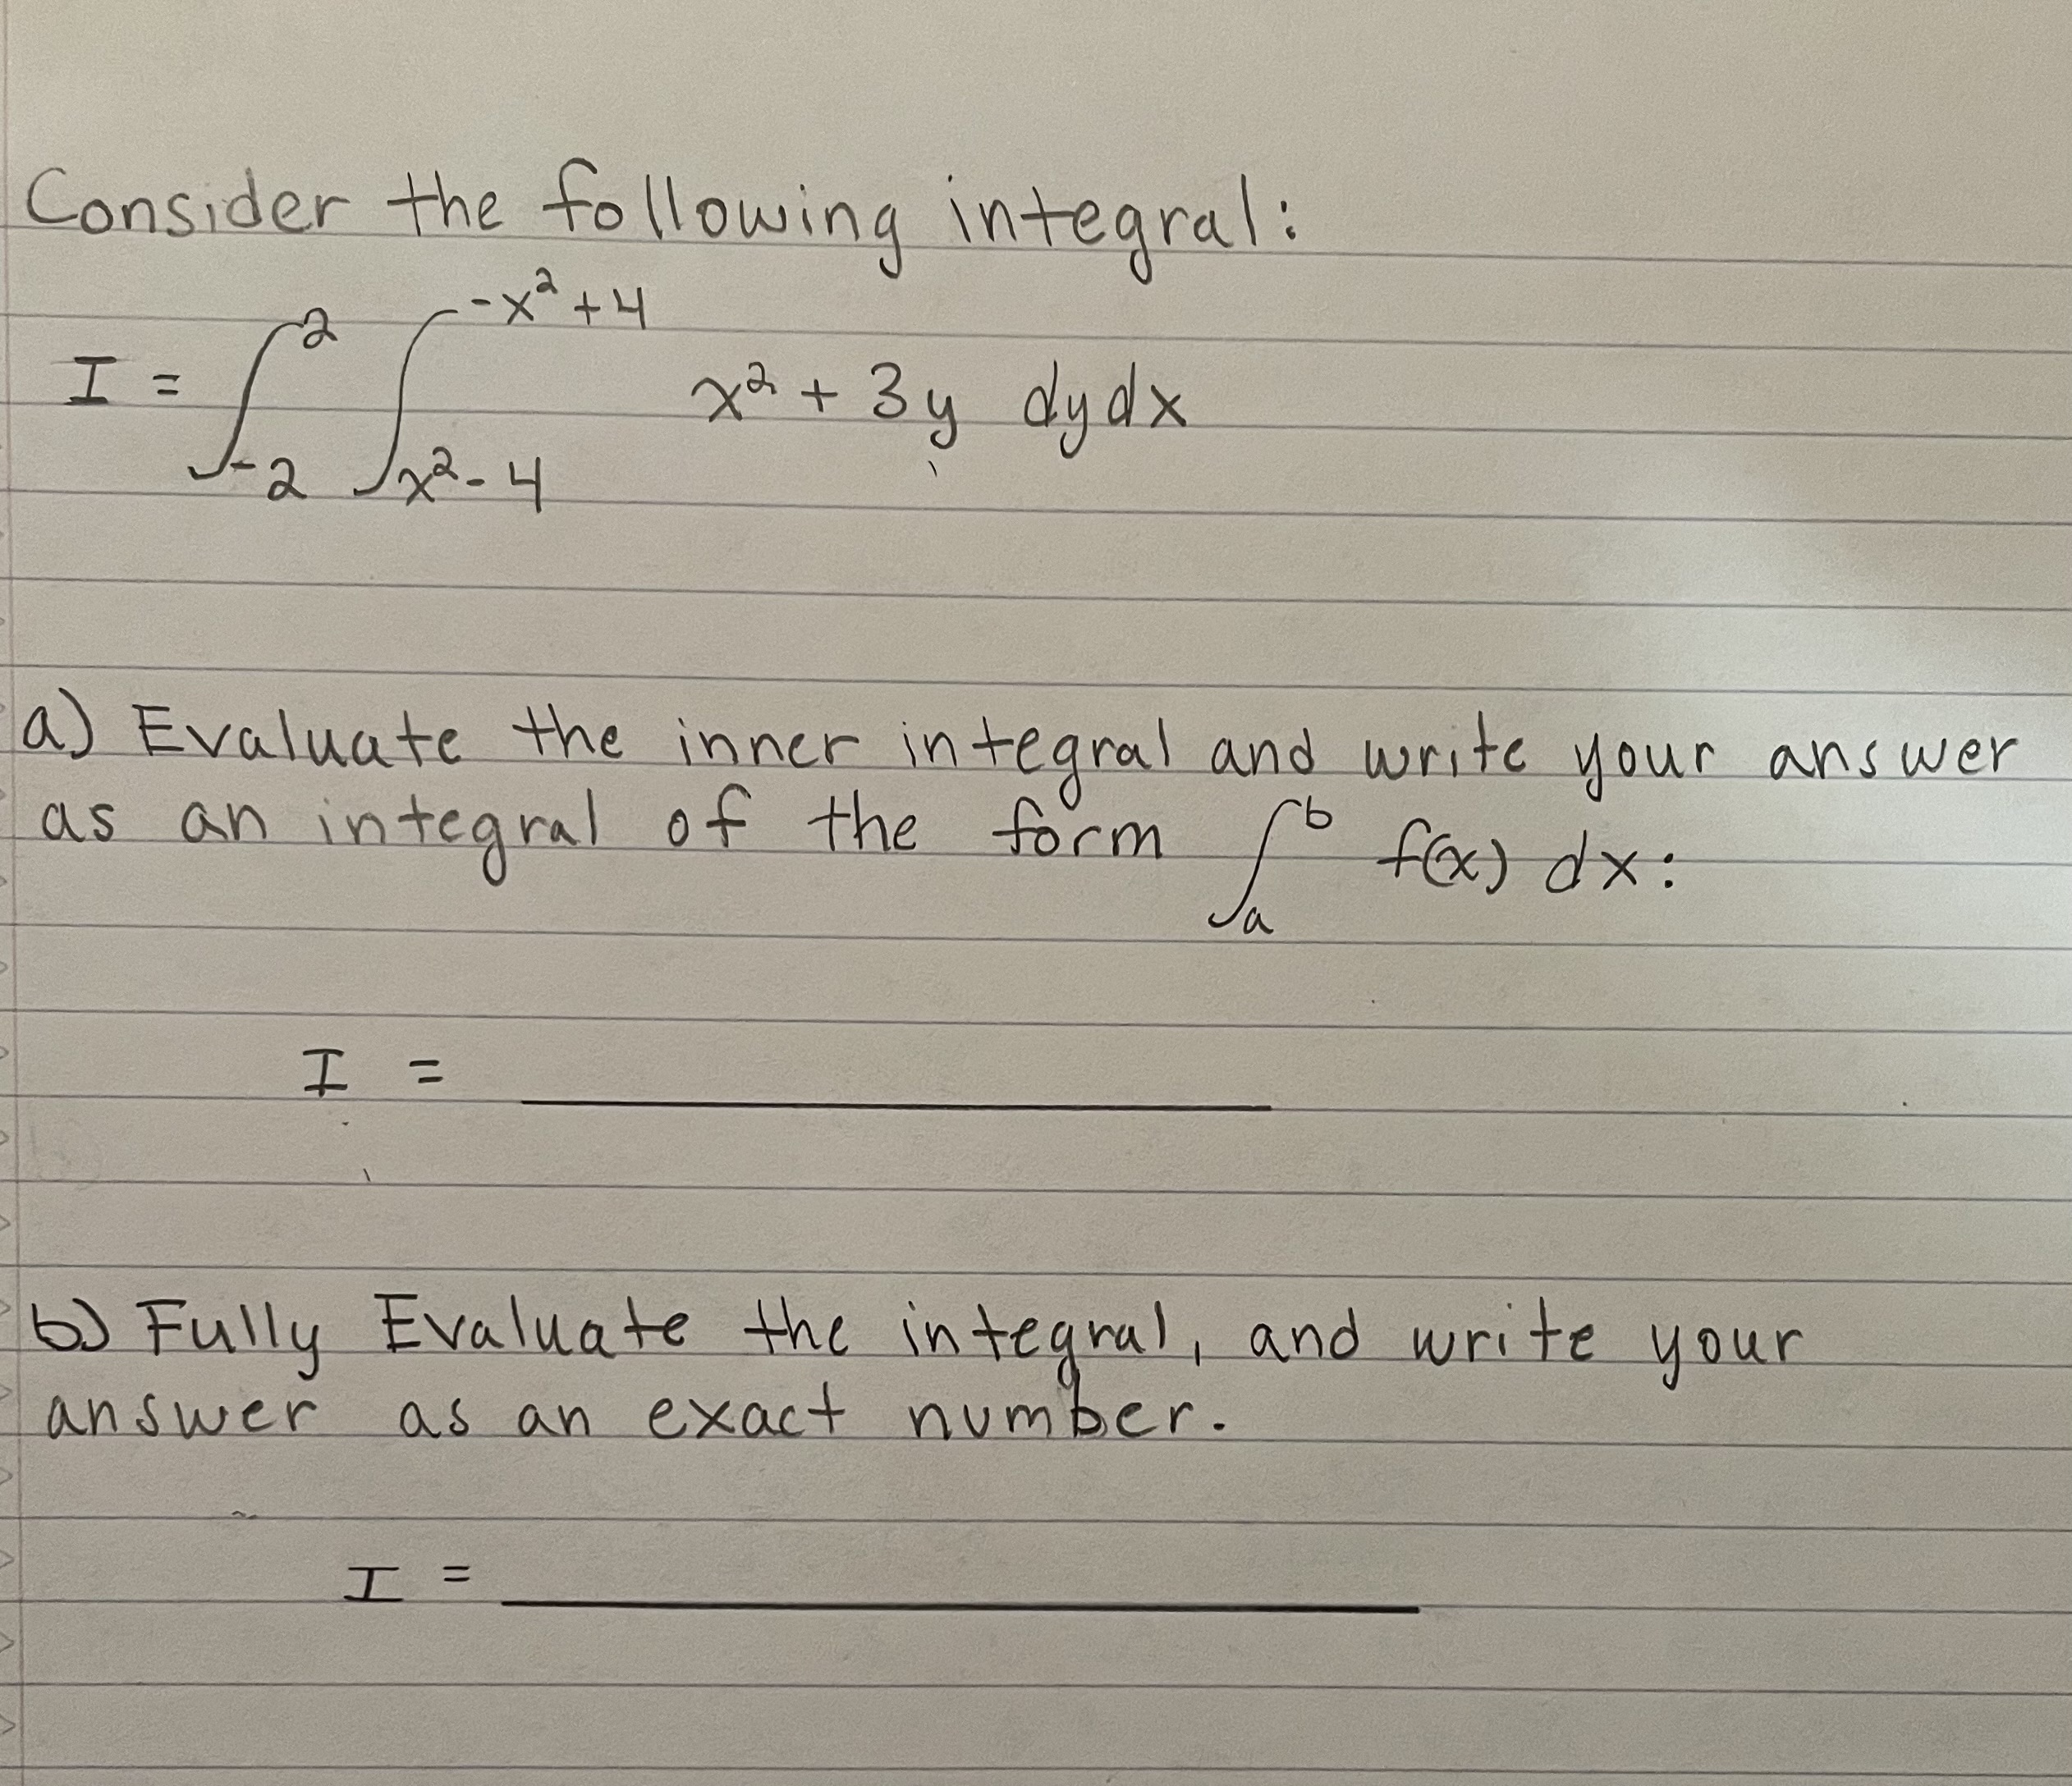 Consider the following integral:
I = ∫_{-2}^{2} ∫_{x²-4}^{-x²+4} x² + 3y dydx
a) Evaluate the inner integral and write your answer
as an integral of the form ∫_a^b f(x) dx:
I = ________
b) Fully Evaluate the integral, and write your
answer as an exact number.
I = ________